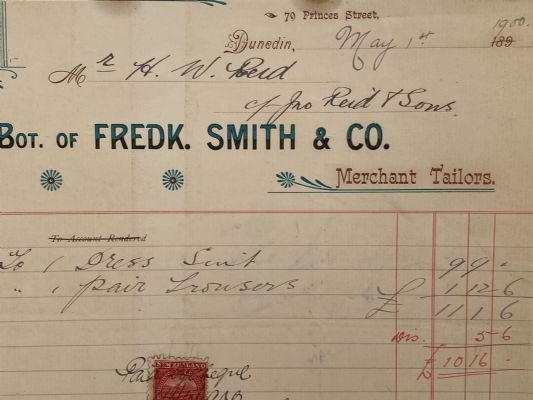 79 Princes Street,
1900.
Dunedin, May 1st 189
Mr H. W. Reid
c/- Jno Reid & Sons.
BOT. OF FREDK. SMITH & CO.
Merchant Tailors.
To Account Rendered
To 1 Dress Suit 9 9 -
" 1 pair Trousers 1 12 6
£ 11 1 6
Dis. 5 - 6
£ 10 16 -
NEW ZEALAND